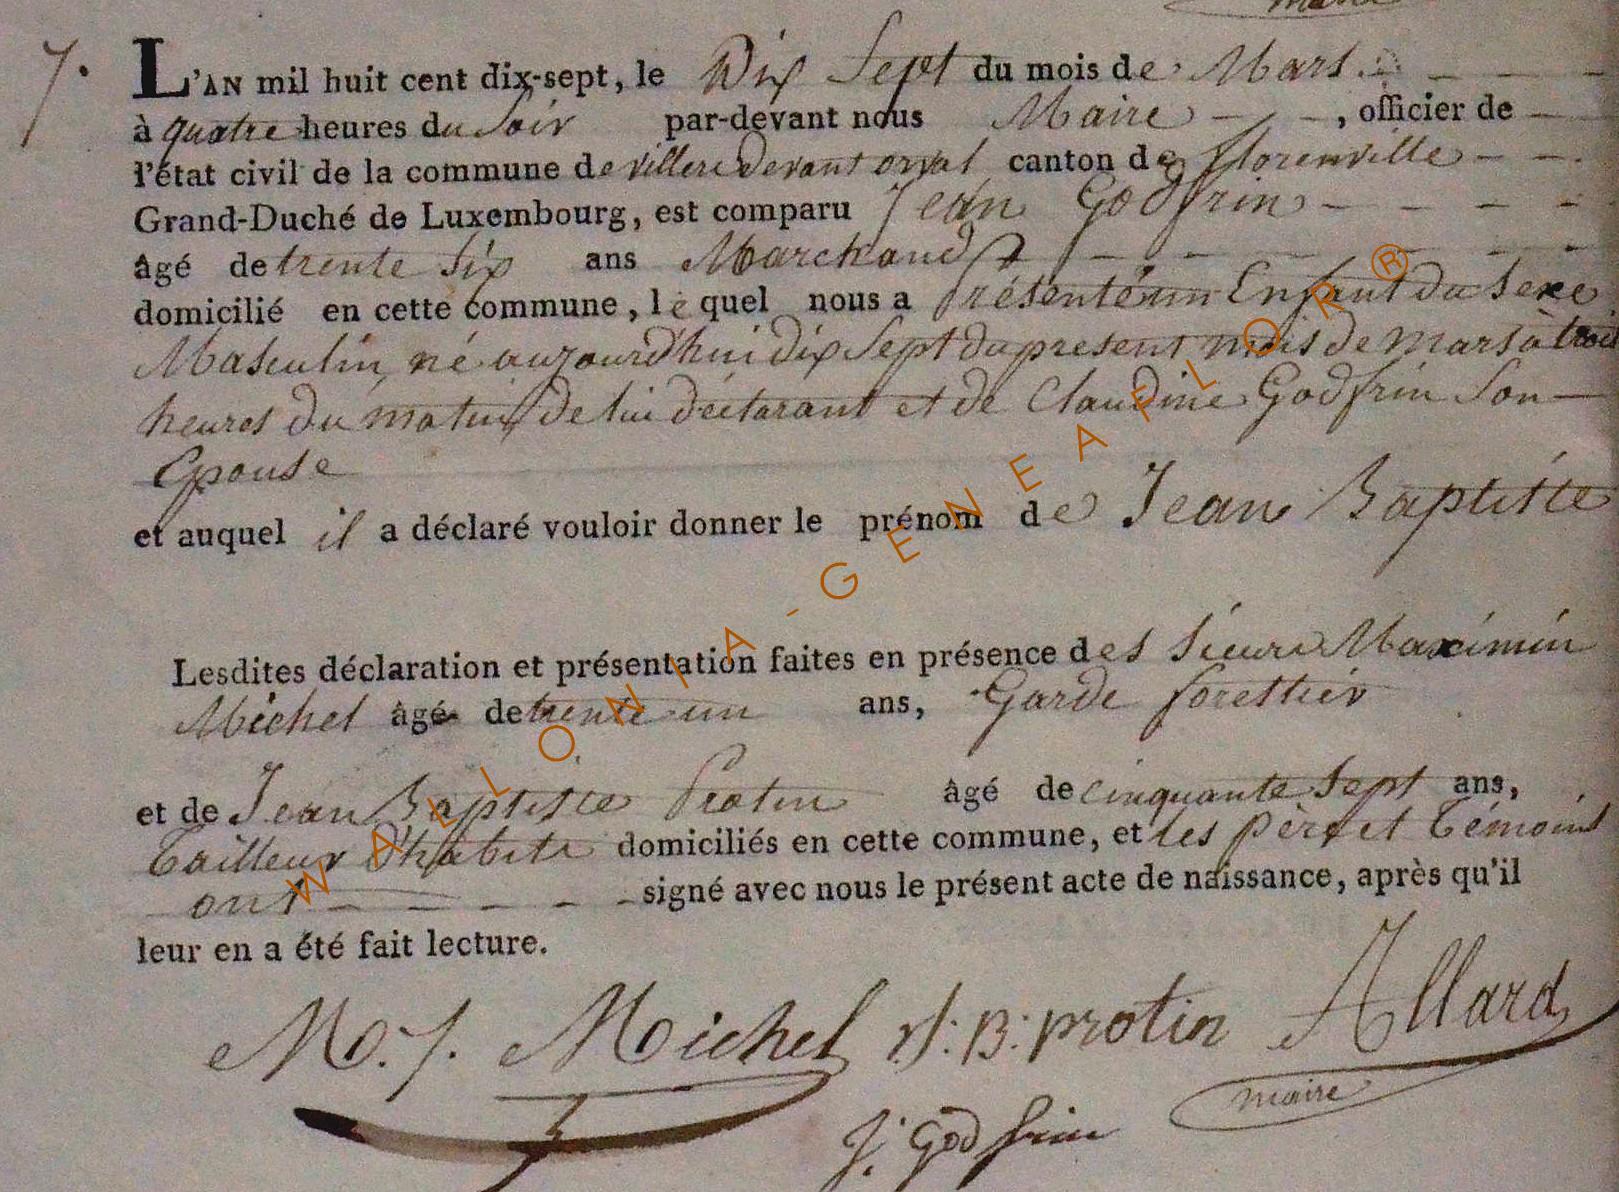 maire
7.
L'AN mil huit cent dix-sept, le Dix Sept du mois de Mars
à quatre heures du Soir par-devant nous Maire - - , officier de
l'état civil de la commune de villers devant orval canton de florenville - -
Grand-Duché de Luxembourg, est comparu Jean Godfrin - - - -
âgé de trente Six ans Marchand - - - -
domicilié en cette commune, le quel nous a présenté un Enfant du Sexe
Masculin, né aujourd'hui dix Sept du present mois de mars à trois
heures du matin de lui déclarant et de Claudine Godfrin Son
Epouse
et auquel il a déclaré vouloir donner le prénom de Jean Baptiste
Lesdites déclaration et présentation faites en présence des Sieurs Maximin
Michel âgé de trente un ans, Garde forestier
et de Jean Baptiste Protin âgé de cinquante Sept ans,
Tailleur D'habits domiciliés en cette commune, et les père et Témoins
ont - - - - - signé avec nous le présent acte de naissance, après qu'il
leur en a été fait lecture.
M. J. Michel J: B: protin Allard
maire
J: Godfrin
WALLONIA-GENEAFLOR®